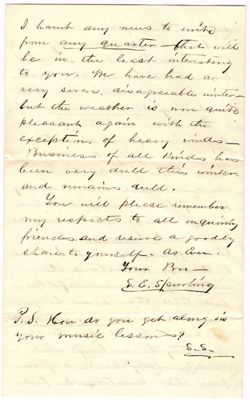 I havnt any news to write
from any quarter that will
be in the least interesting
to you. We have had a
very severe, disagreeable winter
but the weather is now quite
pleasant again with the
exceptions of heavy winds –
Business of all kinds has
been very dull this winter
and remains dull.
You will please remember
my respects to all inquiring
friends and receive a goodly
share to yourself. As Ever.
Your Bro –
S. E. Spurling
P.S. How do you get along in
your music lessons?
S.S.